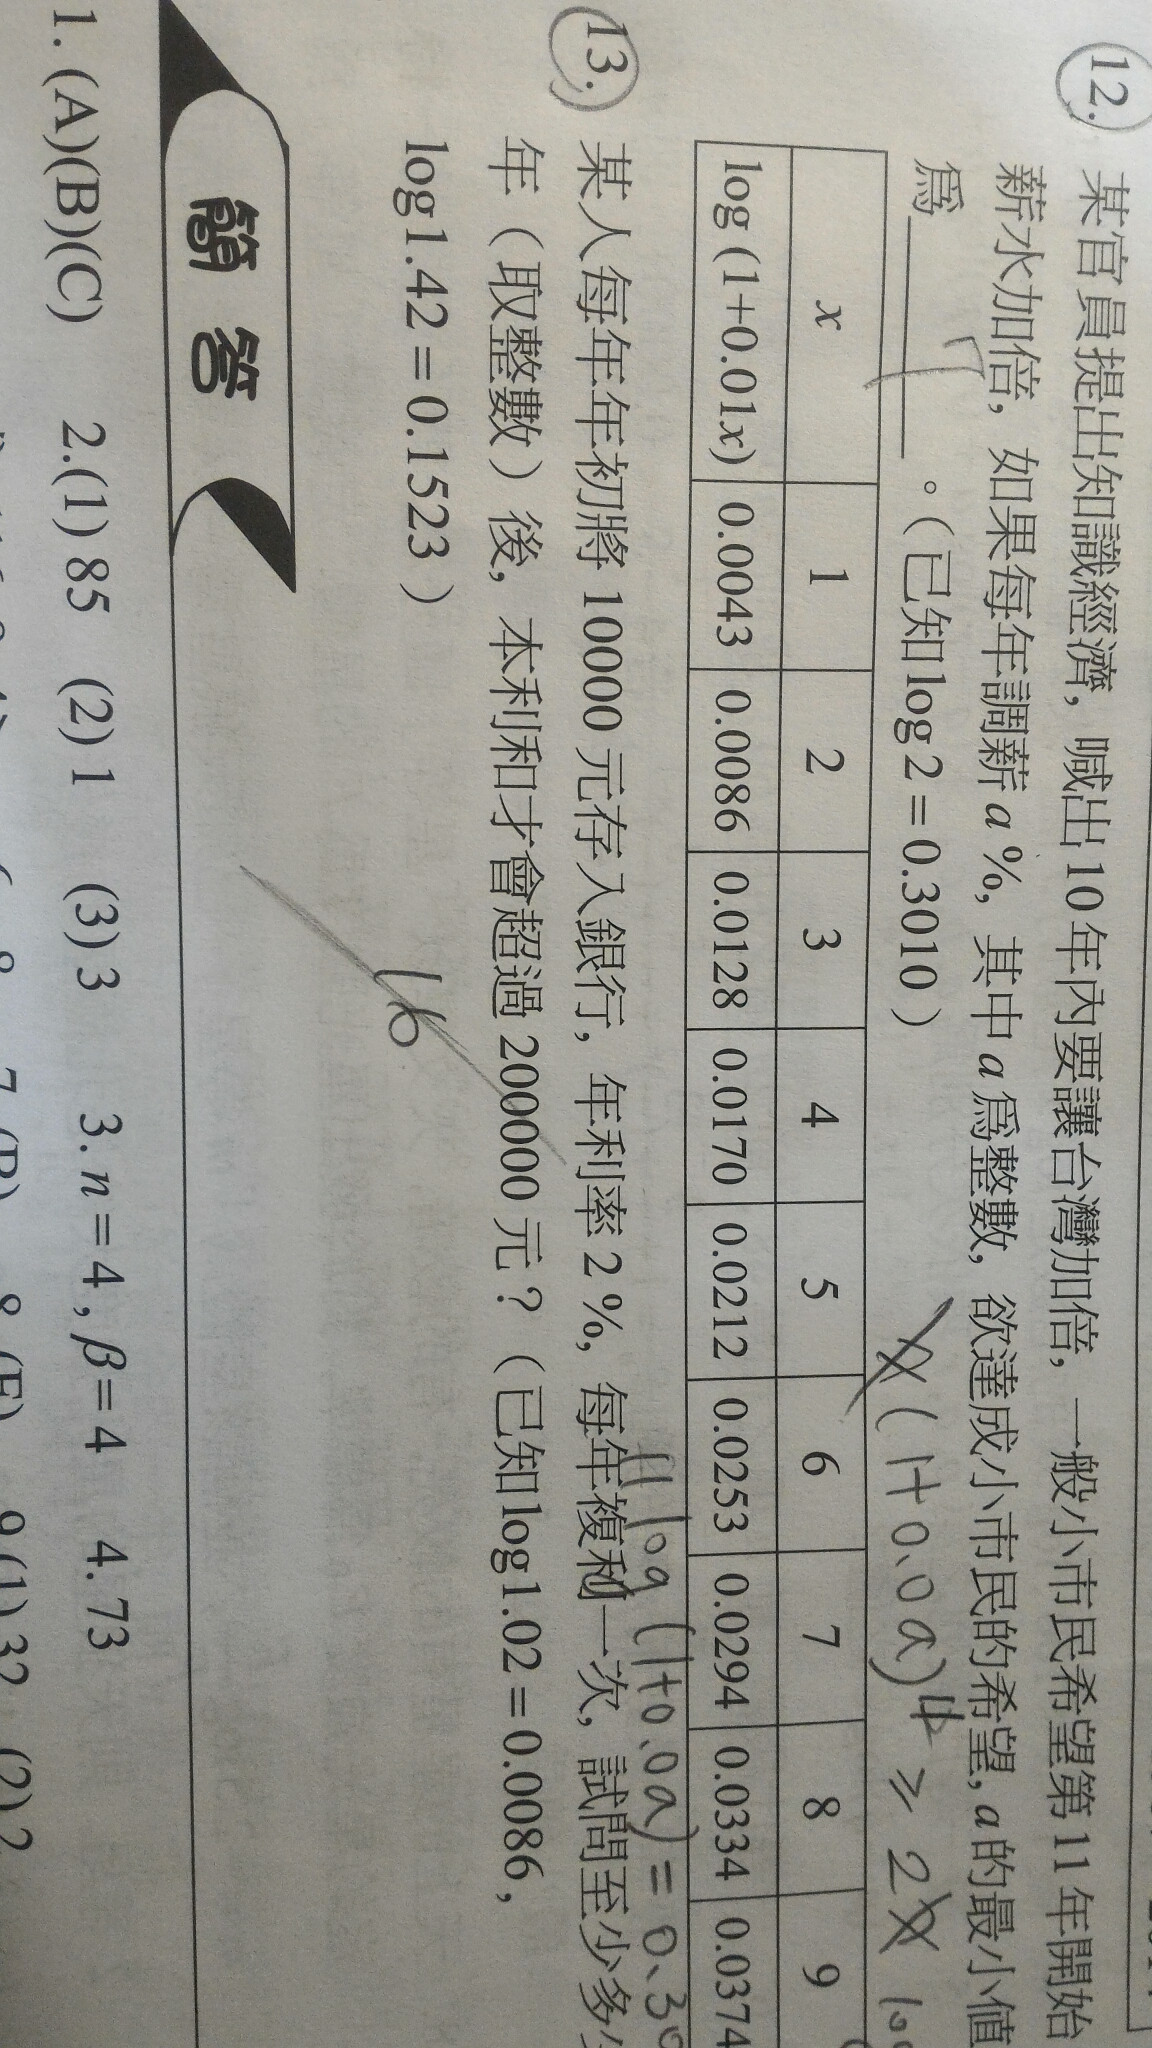 12. 某官員提出知識經濟，喊出10年內要讓台灣加倍，一般小市民希望第11年開始
薪水加倍，如果每年調薪a%，其中a爲整數，欲達成小市民的希望，a的最小值
爲______。（已知log2=0.3010）
7
x(1+0.0a)^11 ≥ 2x
x 1 2 3 4 5 6 7 8 9
log (1+0.01x) 0.0043 0.0086 0.0128 0.0170 0.0212 0.0253 0.0294 0.0334 0.0374
11 log (1+0.0a) = 0.30
13. 某人每年年初將10000元存入銀行，年利率2%，每年複利一次，試問至少多少
年（取整數）後，本利和才會超過200000元？（已知log1.02=0.0086，
log1.42=0.1523）
16
簡答
1. (A)(B)(C) 2.(1) 85 (2) 1 (3) 3 3. n=4, β=4 4. 73
7.(B) 8.(E) 9.(1) 32 (2) 2